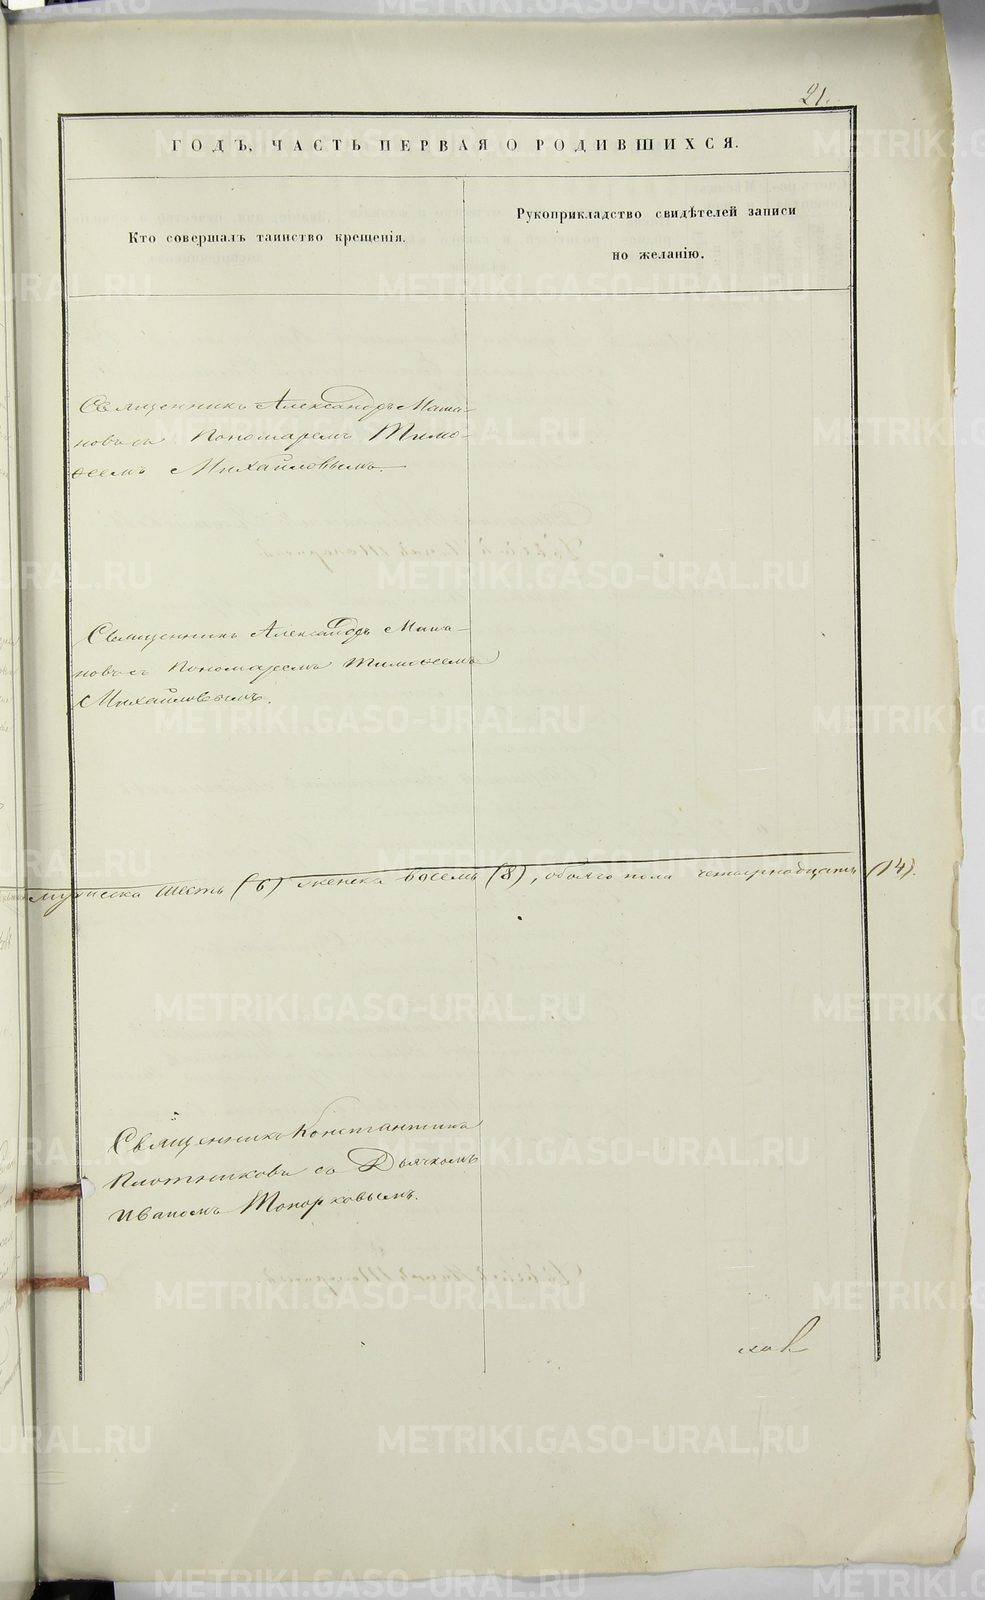 21.
ГОДЪ, ЧАСТЬ ПЕРВАЯ О РОДИВШИХСЯ.
Кто совершалъ таинство крещенія.
Рукоприкладство свидѣтелей записи
по желанію.
Священникъ Александръ Мама-
новъ съ Пономаремъ Тимо-
ѳеемъ Михайловымъ.
Священникъ Александръ Мама-
новъ съ Пономаремъ Тимоѳеемъ
Михайловымъ.
мужеска шесть (6) женска восемь (8), обоего пола четырнадцать (14).
Священникъ Константинъ
Плотниковъ со Дьячкомъ
Иваномъ Топорковымъ.
METRIKI.GASO-URAL.RU